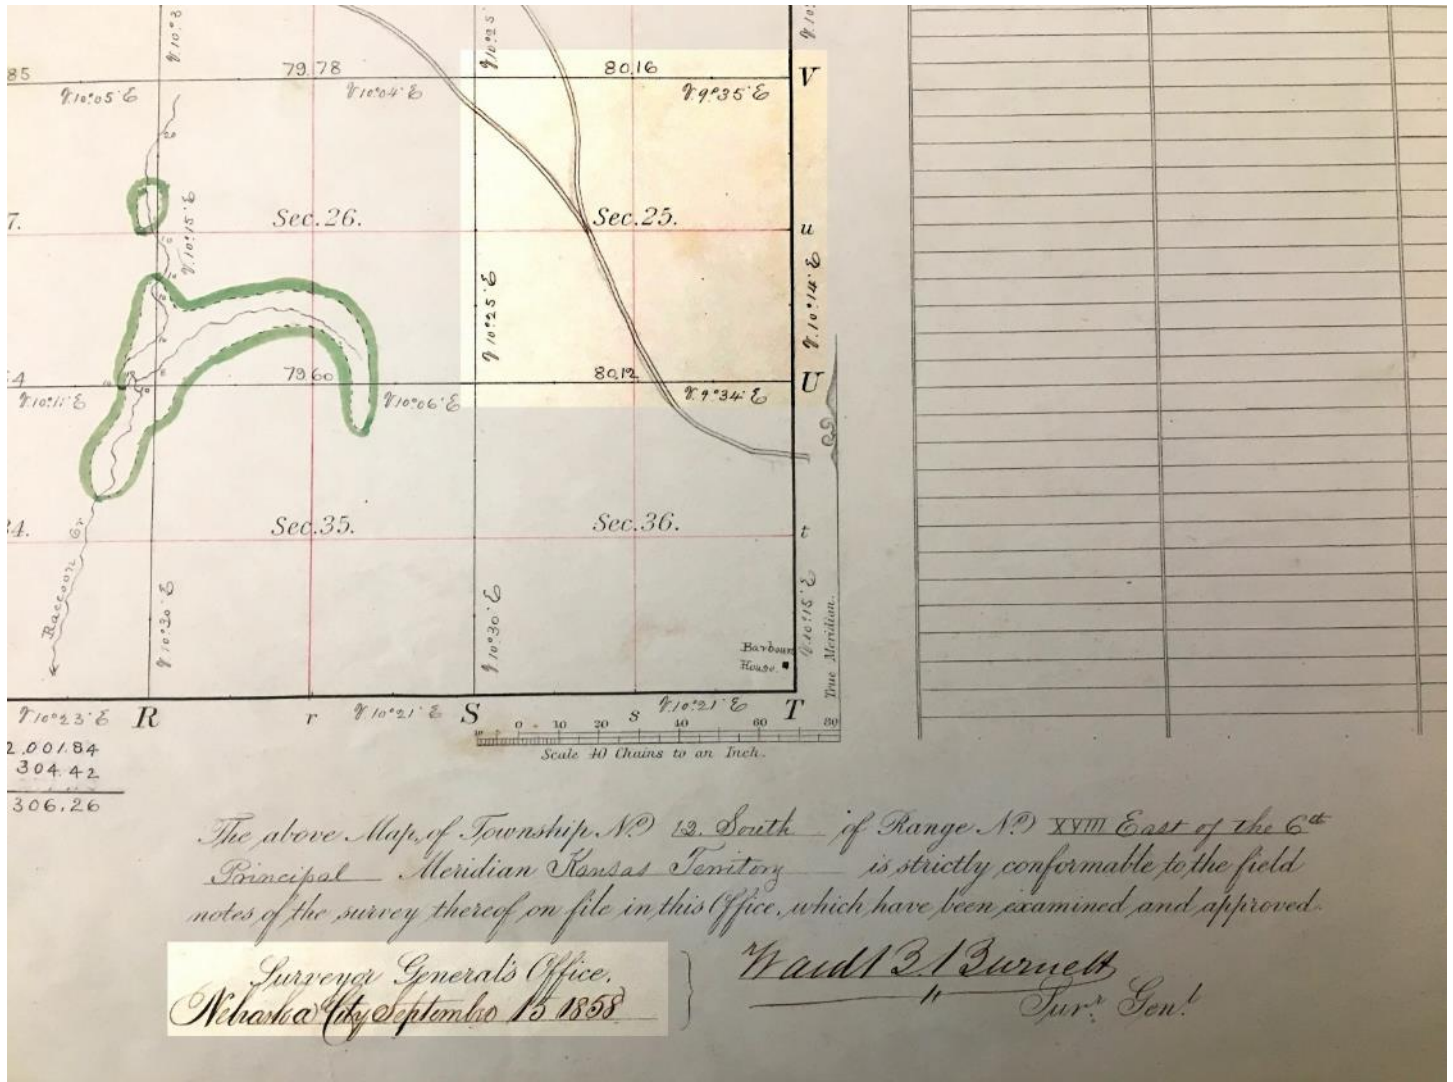 85
79.78
80.16
V
V.10°.05'.E
V.10°.04'.E
V.9°.35'.E
7.
Sec.26.
Sec.25.
u
V.10°.15'.E
V.10°.25'.E
V.10°.14'.E
79.60
80.12
U
V.10°.11'.E
V.10°.06'.E
V.9°.34'.E
34.
Sec.35.
Sec.36.
t
Raccoon Cr.
V.10°30'.E
V.10°30'.E
V.10°.15'.E
True Meridian.
Barbour
House.
V.10°23'.E
R
r
V.10°21'.E
S
s
V.10°21'.E
T
0 10 20 40 60 80
Scale 40 Chains to an Inch.
2,001.84
304.42
306.26
The above Map, of Township No 12. South of Range No XVIII East of the 6th
Principal Meridian Kansas Territory is strictly conformable to the field
notes of the survey thereof on file in this Office, which have been examined and approved.
Surveyor General's Office.
Nebraska City September 15 1858
Ward B Burnett
Surr. Genl.